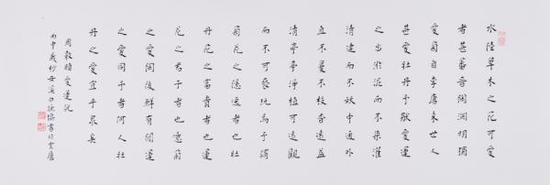 水陸草木之花可愛
者甚蕃晉陶淵明獨
愛菊自李唐来世人
甚愛牡丹予獨愛蓮
之出淤泥而不染濯
清漣而不妖中通外
直不蔓不枝香遠益
清亭亭淨植可遠觀
而不可褻玩焉予謂
菊花之隱逸者也牡
丹花之富貴者也蓮
花之君子者也噫菊
之愛陶後鮮有聞蓮
之愛同予者何人牡
丹之愛宜乎衆矣
周敦頤愛蓮說
丙申歲杪安溪書於雲廬